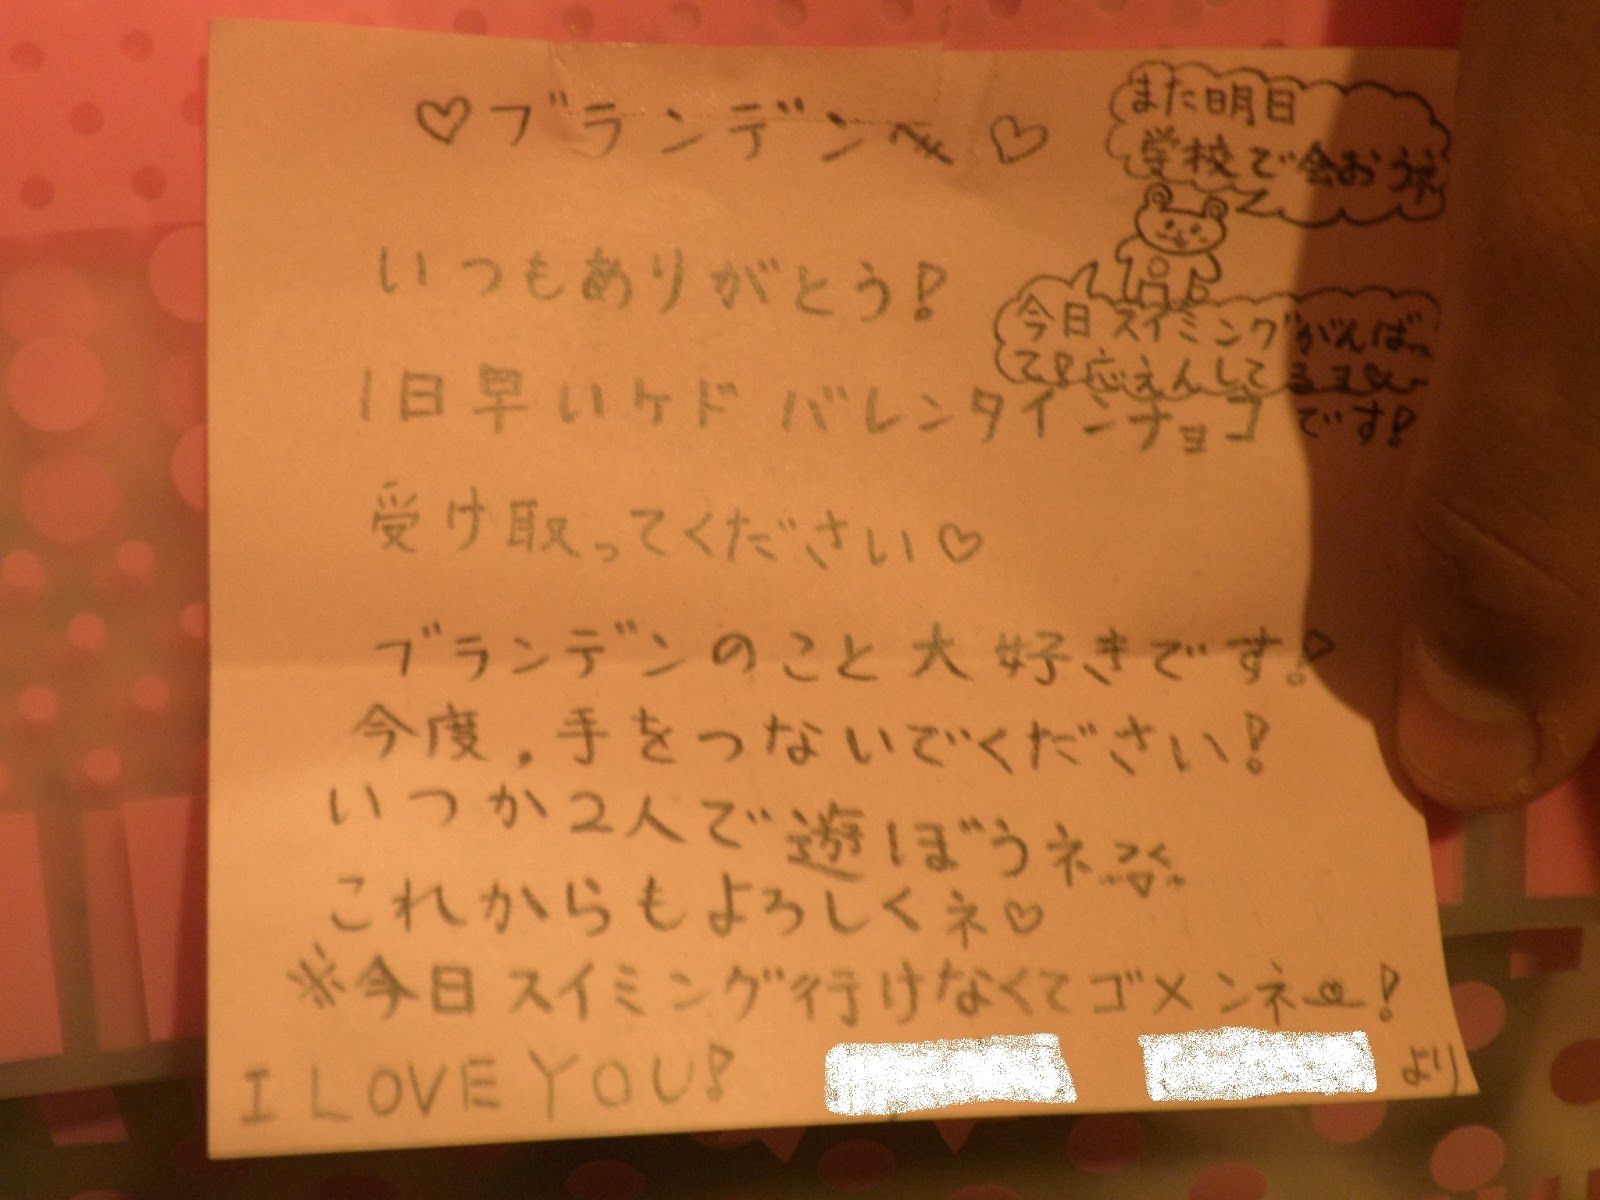 ♡ブランデンへ♡
また明日
学校で会おうネ
今日スイミングがんばっ
て!応えんしてるヨ
いつもありがとう!
1日早いケド バレンタインチョコです!
受け取ってください♡
ブランデンのこと大好きです!
今度,手をつないでください!
いつか2人で遊ぼうネ
これからもよろしくネ♡
※今日スイミング行けなくてゴメンネ!
I LOVE YOU! より